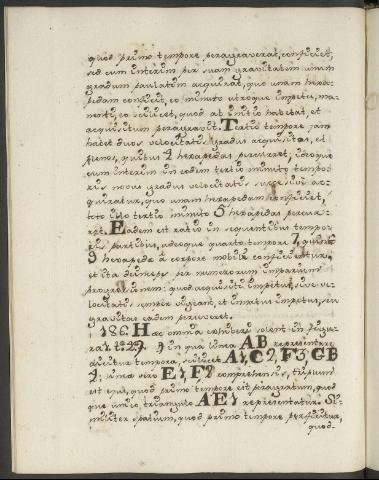 quod primo tempore peragraverat, conficiet,
sed cum interim per suam gravitatem unum
gradum paulatim acquirat, quo unam hexa-
pedam conficit, eo minuto utroque impetu, ma-
nenti, eo scilicet, quod ab initio habebat, et
acquisitum peragravit. Tertio tempore jam
habet duos velocitatis gradus acquisitas, et
plenos, quibus 4 hexapedas percurret; ideoque
cum interim in eodem tertio minuto tempo-
ris novus gradus velocitatis successive ac-
quiratur, quo unam hexapedam conficiet,
toto illo tertio minuto 5 hexapedas percur-
ret. Eadem est ratio in sequentibus tempo-
ris partibus, adeoque quarto tempore 7, quinto
9 hexapedæ a corpore mobili conficiuntur,
et ita deinceps per numerorum imparium
progressionem: quod acquisiti impetus, sive ve-
locitatis semper vigeant, et innatus impetus, seu
gravitas eadem perseveret.
186. Hæc omnia exhiberi solent in figu-
ra 1. 129. in qua linea AB repræsentare
dicitur tempora, scilicet A1, C2, F3, GB
4; linea vero E1, F2 comprehensis, tripunt
est ejus, quod primo tempore est peragratum, quod-
que unico, triangulo AE1 repræsentatur. Si-
militer spatium, quod primo tempore perficitur,
quod-